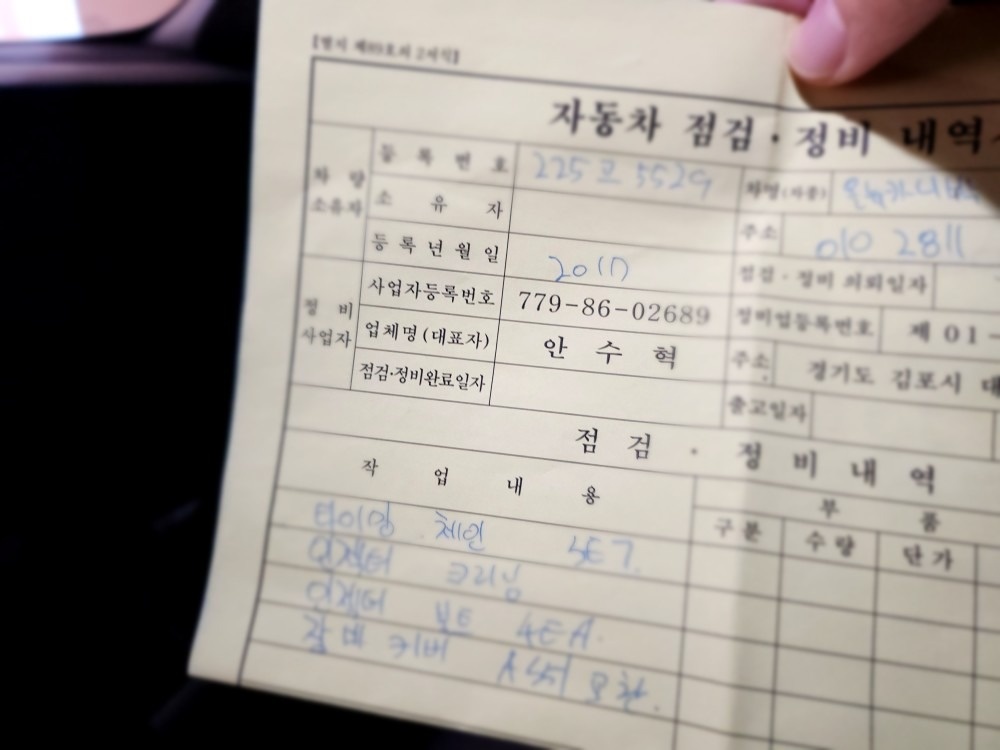 [별지 제89호의 2서식]
자동차 점검·정비 내역
차량 소유자
등록번호 225 5529 차명(차종) 올뉴카니발
소유자 주소 010 2811
등록년월일 2017 점검·정비 의뢰일자
정비 사업자
사업자등록번호 779-86-02689 정비업등록번호 제 01-
업체명(대표자) 안수혁 주소 경기도 김포시
점검·정비완료일자 출고일자
점검·정비내역
작업내용 부품
구분 수량 단가
타이밍 체인 SET.
인젝터 크리닝
인젝터 볼트 4EA.
잠바 커버 A'ssy 교환.